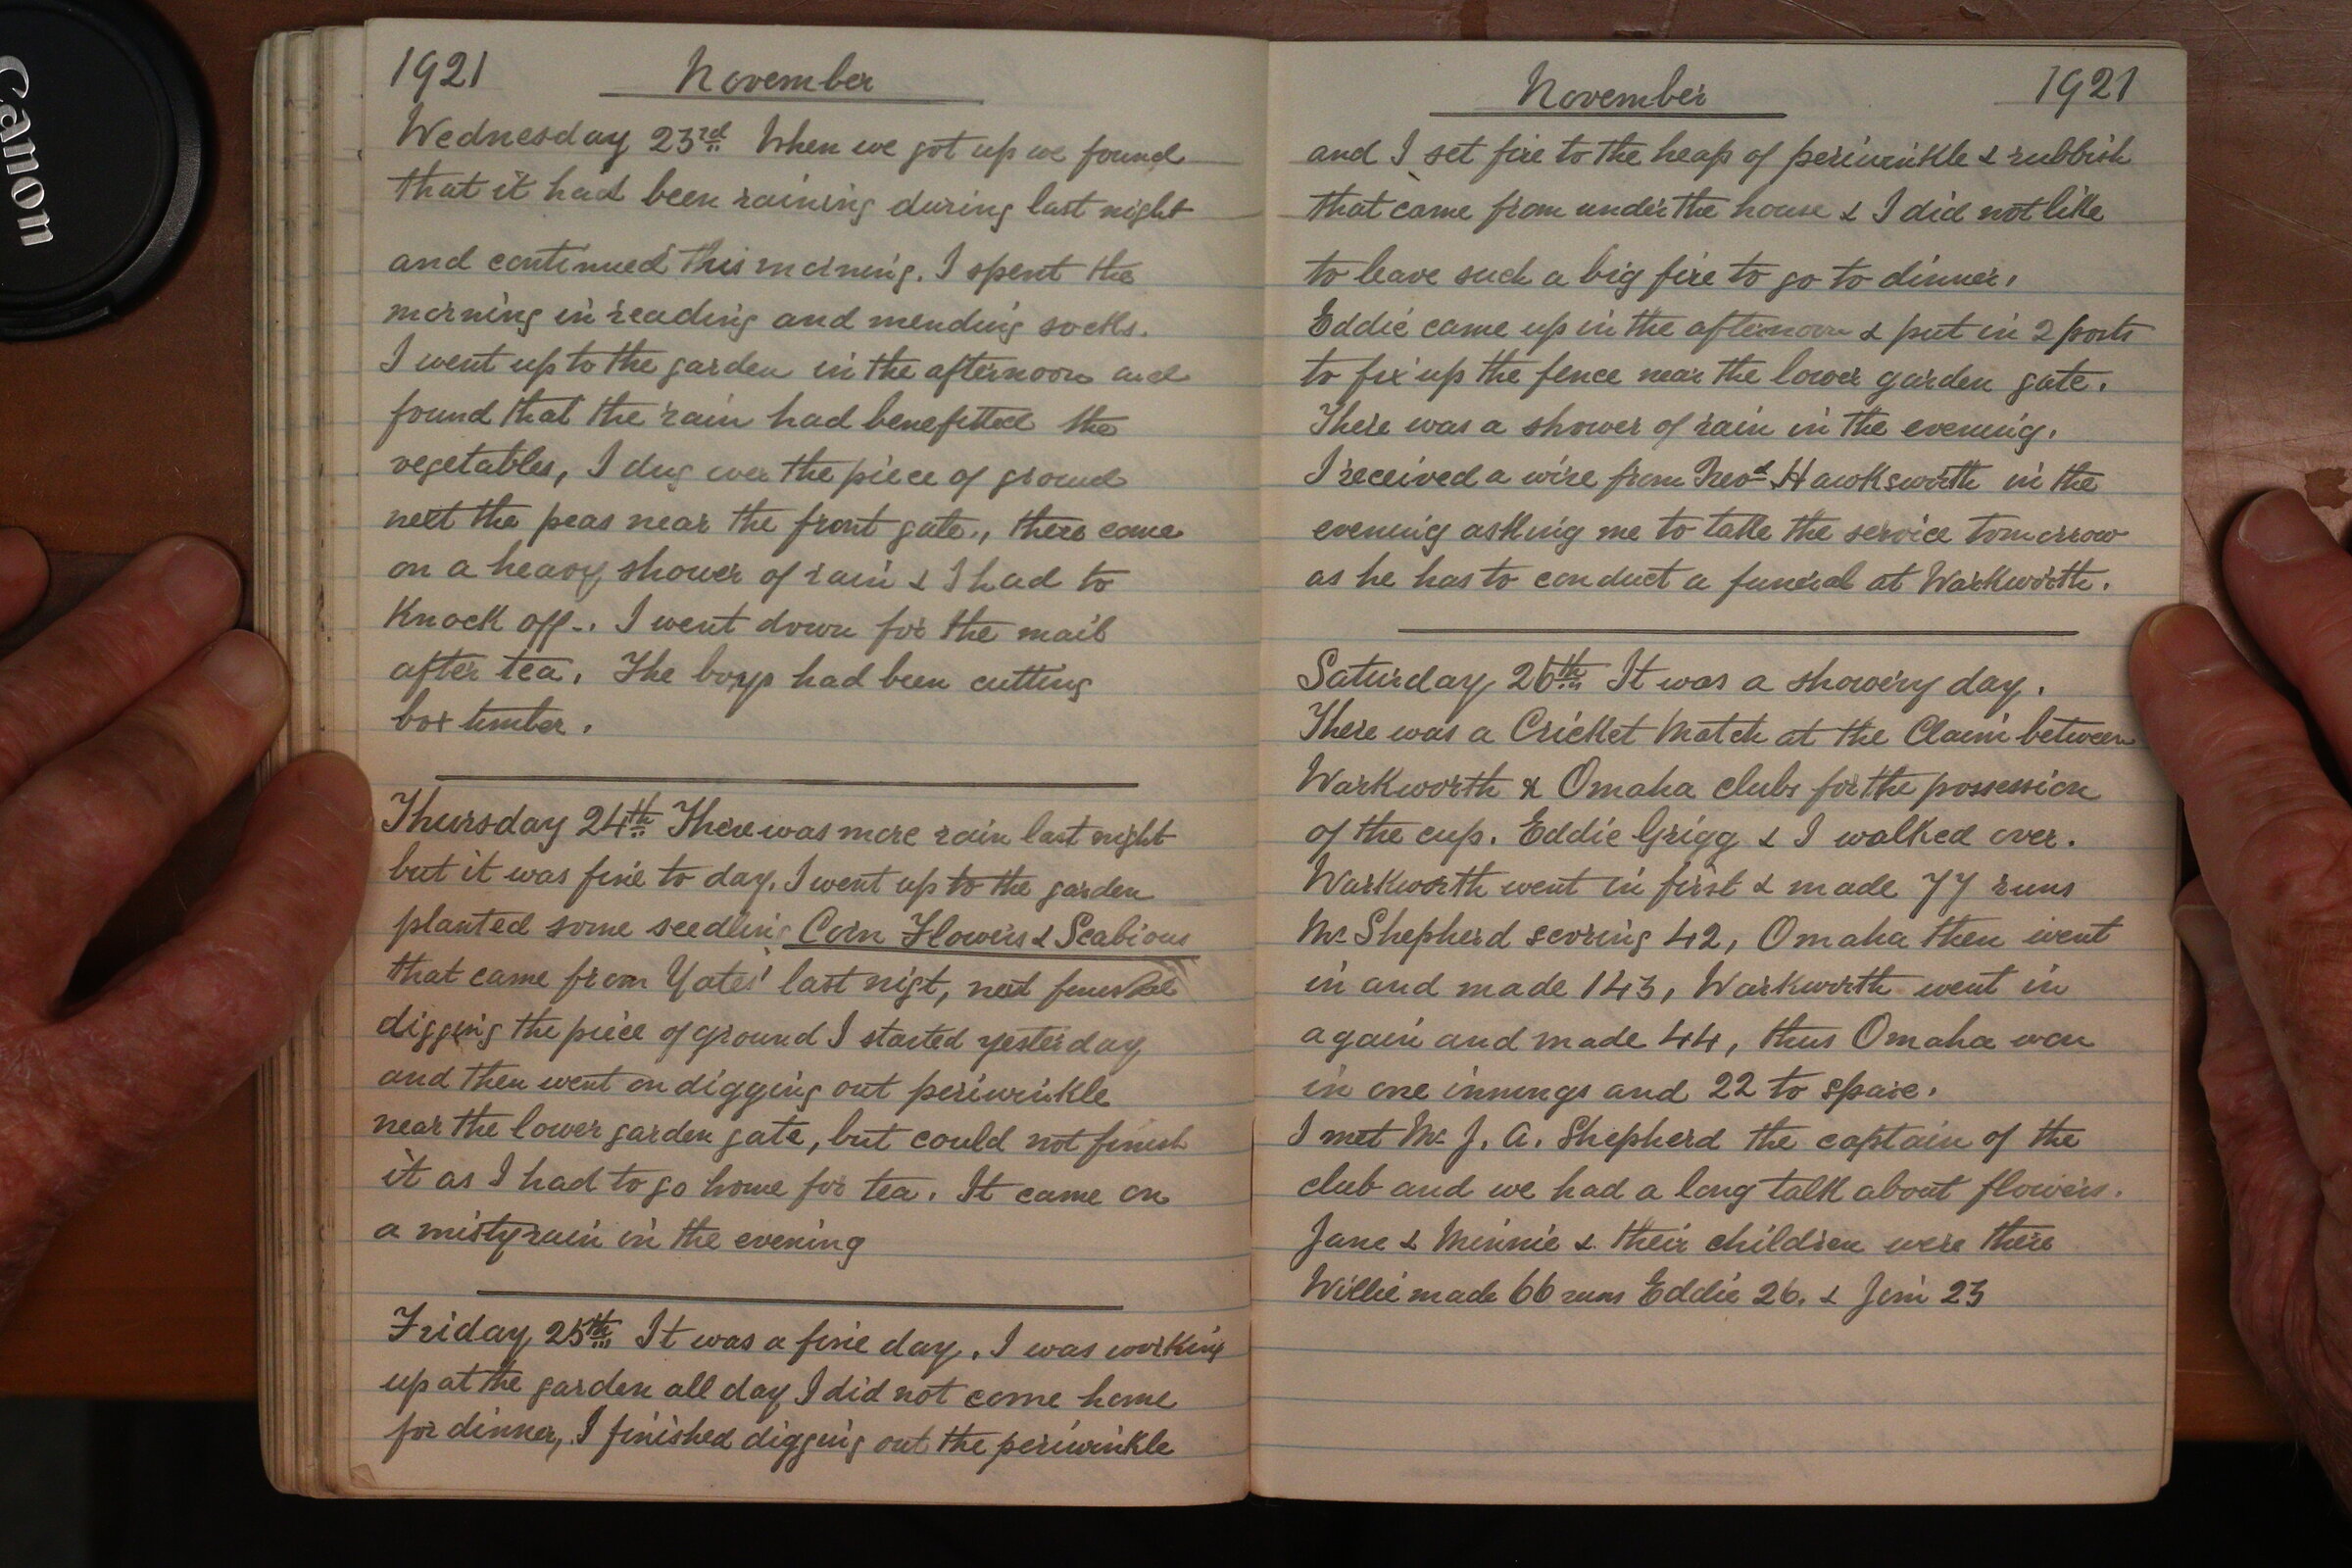 Canon
1921 November
Wednesday 23rd When we got up we found
that it had been raining during last night
and continued this morning. I spent the
morning in reading and mending socks.
I went up to the garden in the afternoon and
found that the rain had benefitted the
vegetables, I dug over the piece of ground
next the peas near the front gate., there came
on a heavy shower of rain & I had to
Knock off-. I went down for the mail
after tea. The boys had been cutting
box timber.
Thursday 24th There was more rain last night
but it was fine to day. I went up to the garden
planted some seedling Corn Flowers & Scabious
that came from Yates' last nigt, next finished
digging the piece of ground I started yesterday
and then went on digging out periwinkle
near the lower garden gate, but could not finish
it as I had to go home for tea. It came on
a misty rain in the evening
Friday 25th It was a fine day. I was working
up at the garden all day I did not come home
for dinner, I finished digging out the periwinkle
November 1921
and I set fire to the heap of periwinkle & rubbish
that came from under the house & I did not like
to leave such a big fire to go to dinner.
Eddie came up in the afternoon & put in 2 posts
to fix up the fence near the lower garden gate.
There was a shower of rain in the evening.
I received a wire from Revd Hawksworth in the
evening asking me to take the service tomorrow
as he has to conduct a funeral at Warkworth.
Saturday 26th It was a showery day.
There was a Cricket Match at the Claim between
Warkworth & Omaha clubs for the possession
of the cup. Eddie Grigg & I walked over.
Warkworth went in first & made 77 runs
Mr Shepherd scoring 42, Omaha then went
in and made 143, Warkworth went in
again and made 44, thus Omaha won
in one innings and 22 to spare.
I met Mr J. A. Shepherd the captain of the
club and we had a long talk about flowers.
Jane & Minnie & their children were there
Willie made 66 runs Eddie 26. & Jim 23